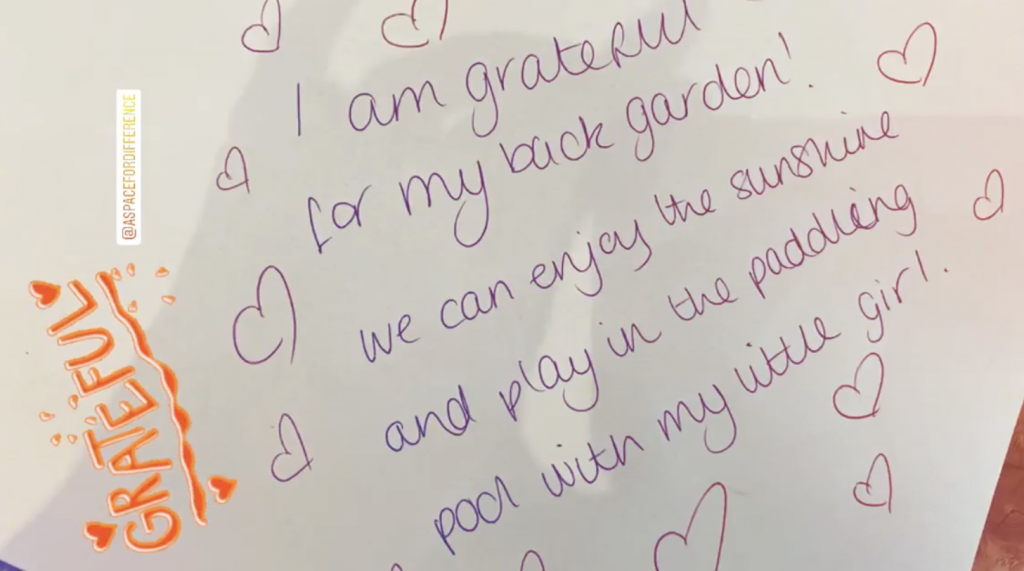 I am grateful
for my back garden!
we can enjoy the sunshine
and play in the paddling
pool with my little girl.
@ASPACEFORDIFFERENCE
GRATEFUL